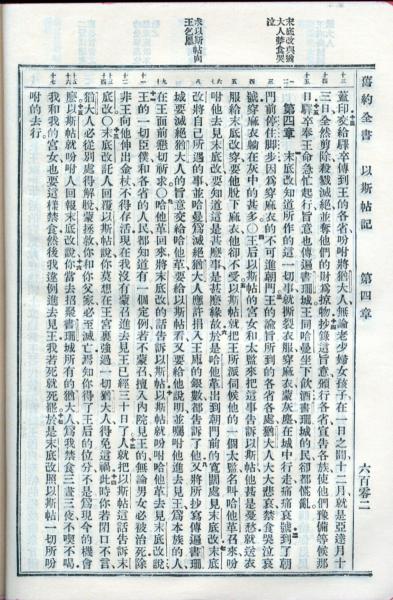 舊約全書 以斯帖記 第四章 六百零二
末底改與猶
大人禁食哭
泣
求以斯帖向
王乞恩
蓋印交給驛卒傳到王的各省吩咐將猶大人無論老少婦女孩子在一日之間十二月就是亞達月十
三日全然剪除殺戮滅絕並奪他們的財為掠物抄錄這旨意頒行各省宣告各族使他們豫備等候那
日驛卒奉王命急忙起行旨意也傳遍書珊城王同哈曼坐下飲酒書珊城的民卻都慌亂
第四章 末底改知道所作的這一切事就撕裂衣服穿麻衣蒙灰塵在城中行走痛痛哀號到了朝
門前停住腳步因為穿麻衣的不可進朝門王的諭旨所到的各省各處猶大人大大悲哀禁食哭泣哀
號穿麻衣躺在灰中的甚多〇王后以斯帖的宮女和太監來把這事告訴以斯帖他甚是憂愁就送衣
服給末底改穿要他脫下麻衣他卻不受以斯帖就把王所派伺候他的一個太監名叫哈他革召來吩
咐他去見末底改要知道這是甚麼事是甚麼緣故於是哈他革出到朝門前的寬闊處見末底改末底
改將自己所遇的事並哈曼為滅絕猶大人應許捐入王庫的銀數都告訴了他又將所抄寫傳遍書珊
城要滅絕猶大人的旨意交給哈他革要給以斯帖看又要給他說明並囑咐他進去見王為本族的人
在王面前懇切祈求〇哈他革回來將末底改的話告訴以斯帖以斯帖就吩咐哈他革去見末底改說
王的一切臣僕和各省的人民都知道有一個定例若不蒙召擅入內院見王的無論男女必被治死除
非王向他伸出金杖不得存活現在我沒有蒙召進去見王已經三十日了人就把以斯帖這話告訴末
底改〇末底改託人回覆以斯帖說你莫想在王宮裏強過一切猶大人得免這禍此時你若閉口不言
猶大人必從別處得解脫蒙拯救你和你父家必至滅亡焉知你得了王后的位分不是為現今的機會
麼以斯帖就吩咐人回報末底改說你當去招聚書珊城所有的猶大人為我禁食三晝三夜不喫不喝
我和我的宮女也要這樣禁食然後我違例進去見王我若死就死罷於是末底改照以斯帖一切所吩
咐的去行